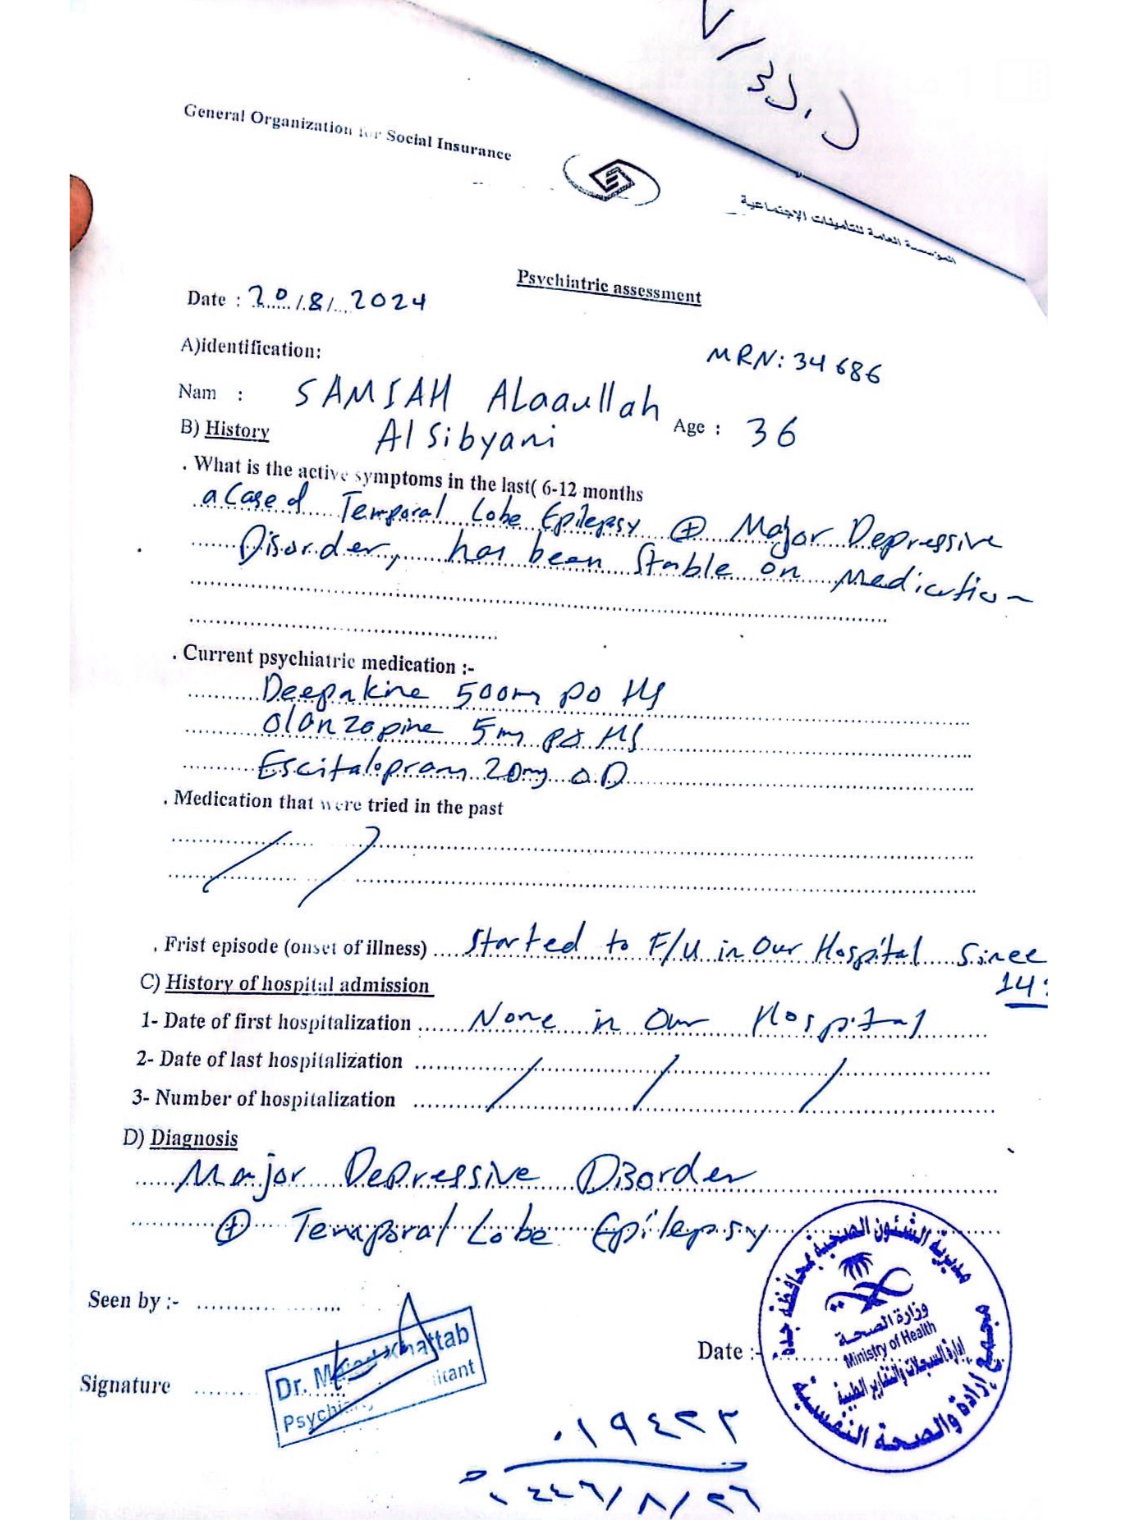 General Organization for Social Insurance
المؤسسة العامة للتأمينات الإجتماعية
Psychiatric assessment
Date : 20/8/2024
A)identification:
MRN: 34686
Nam : SAMIAH Alaaullah
Age : 36
Al Sibyani
B) History
. What is the active symptoms in the last( 6-12 months
a Case of Temporal Lobe Epilepsy ⊕ Major Depressive
Disorder, has been Stable on Medication
. Current psychiatric medication :-
Deepakine 500m po HS
Olanzapine 5m po HS
Escitalopram 20mg O.D
. Medication that were tried in the past
. Frist episode (onset of illness) Started to F/U in Our Hospital Since
14
C) History of hospital admission
1- Date of first hospitalization None in Our Hospital
2- Date of last hospitalization
3- Number of hospitalization
D) Diagnosis
Major Depressive Disorder
⊕ Temporal Lobe Epilepsy
Seen by :-
Signature
Dr. Khattab
Psychi
Date :-
مديرية الشئون الصحية بمحافظة جدة
وزارة الصحة
Ministry of Health
إدارة السجلات والتقارير الطبية
مجمع إرادة والصحة النفسية